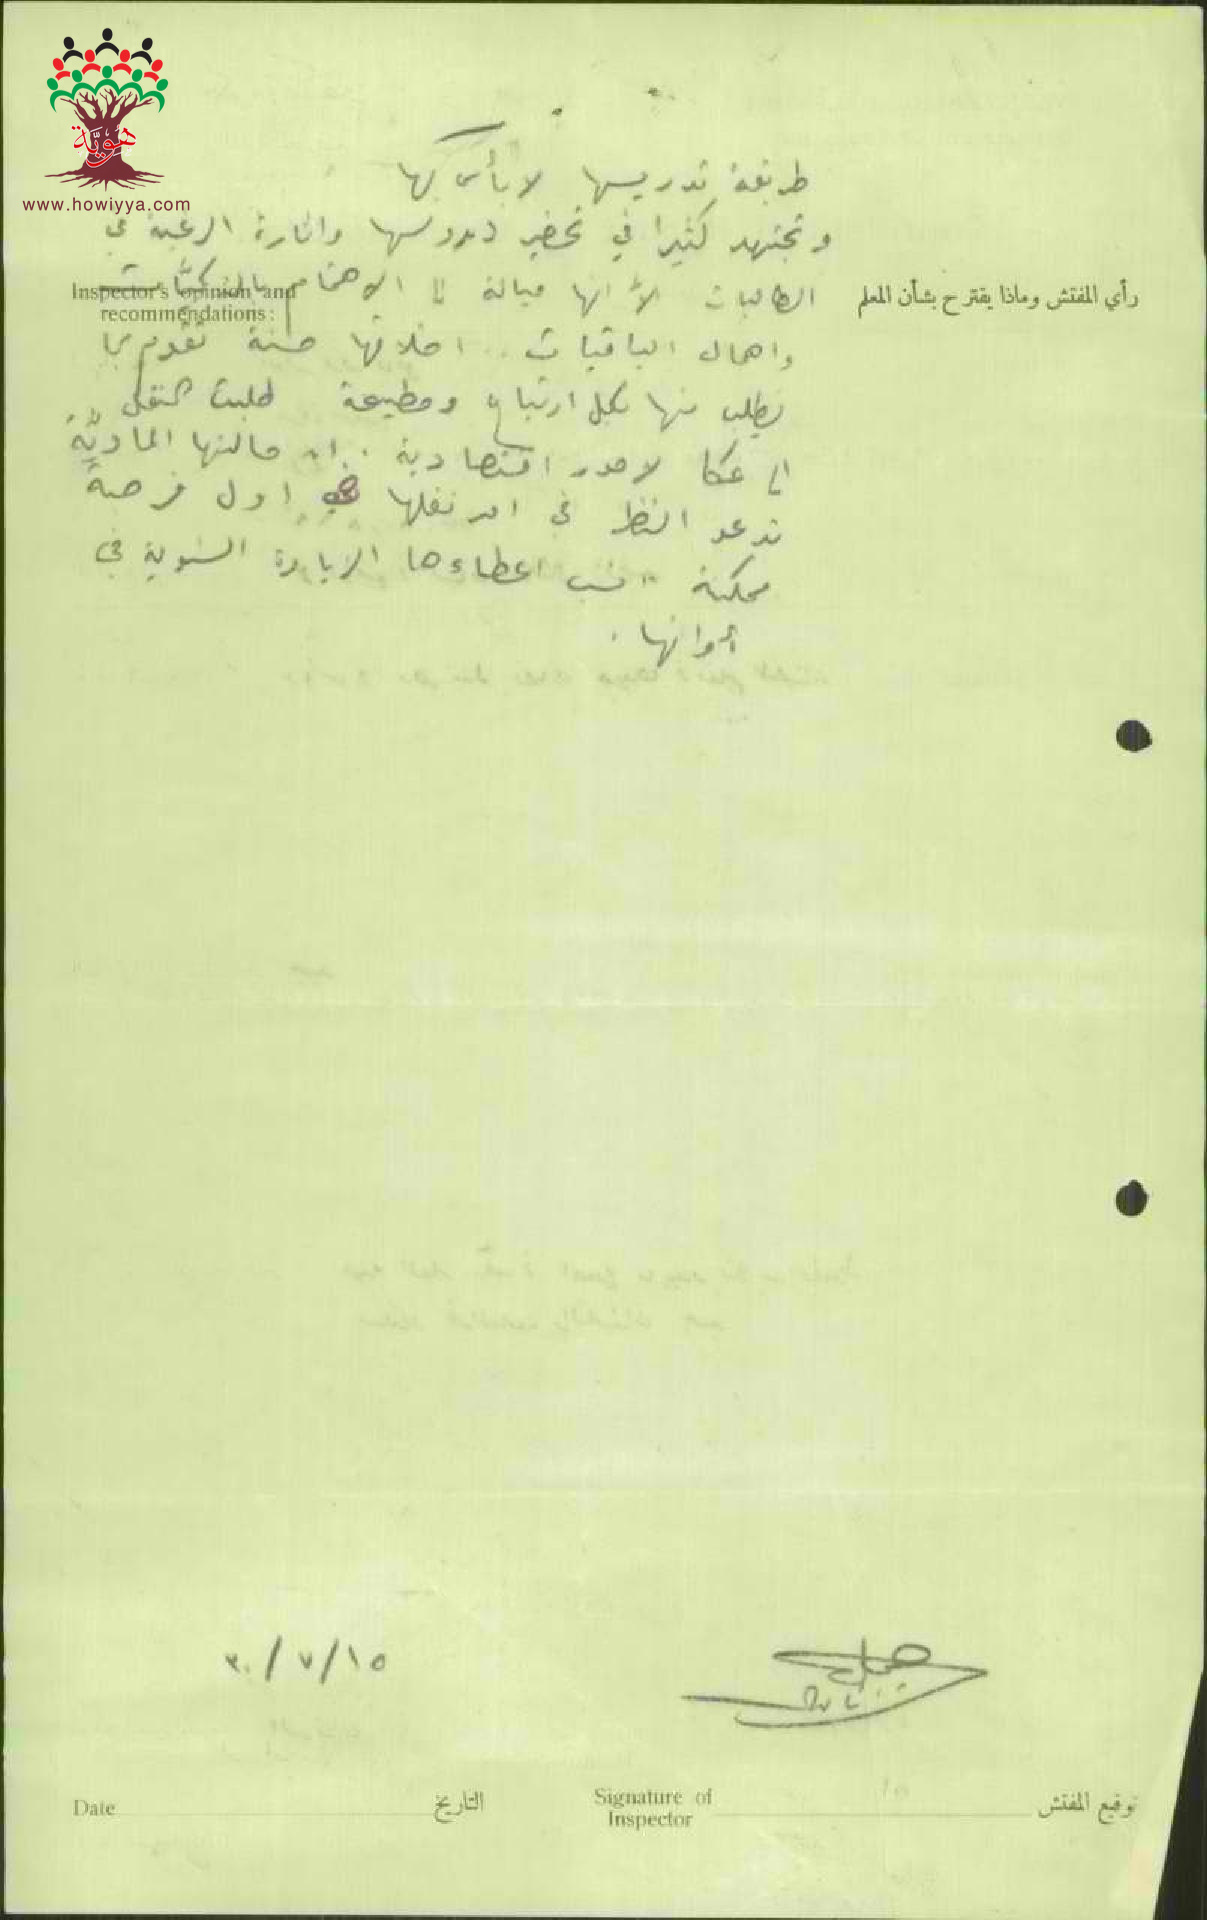 هوية
www.howiyya.com
طريقة تدريسها لا بأس بها
وتجتهد كثيرا في تحضير دروسها واثارة الرغبة في
الطالبات الا انها ميالة الى الاهتمام
رأي المفتش وماذا يقترح بشأن المعلم
Inspector's opinion and
recommendations:
واهمال الباقيات . اخلاقها حسنة تقوم بما
يطلب منها بكل ارتياح ومطيعة طلبت النقل
الى عكا لامور اقتصادية . ان حالتها المادية
تدعو النظر في امر نقلها في اول فرصة
ممكنة انسب اعطاءها الزيادة السنوية في
أوانها .
١٥/٧/٣٠
توقيع المفتش
Signature of
Inspector
التاريخ
Date